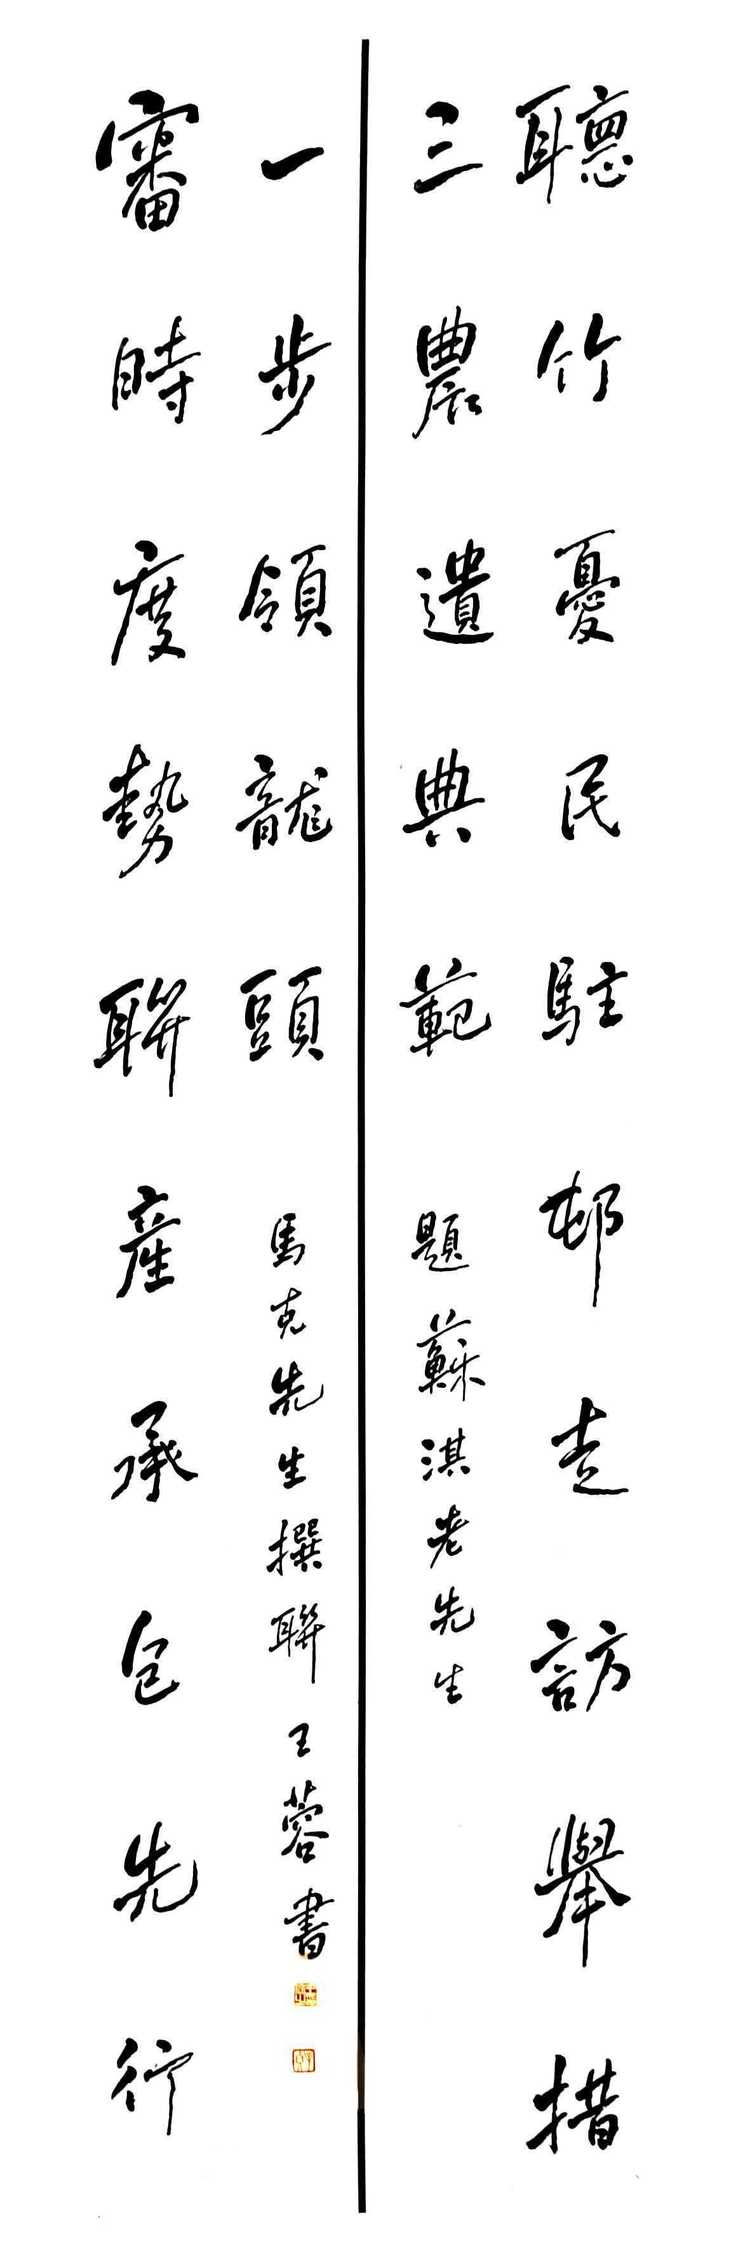 聽竹憂民駐邨走訪舉措
三農遺典範
題蘇淇老先生
審時度勢聯產承包先行
一步領龍頭
馬克先生撰聯 王蓉書